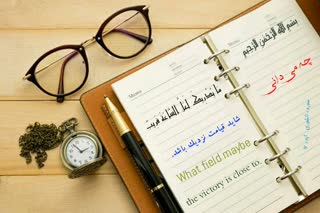 بسم الله الرحمن الرحیم
چه می دانی
Memo
ما یدریک لعل الساعة قریب
شاید قیامت نزدیک باشد.
What field maybe
the victory is close to.